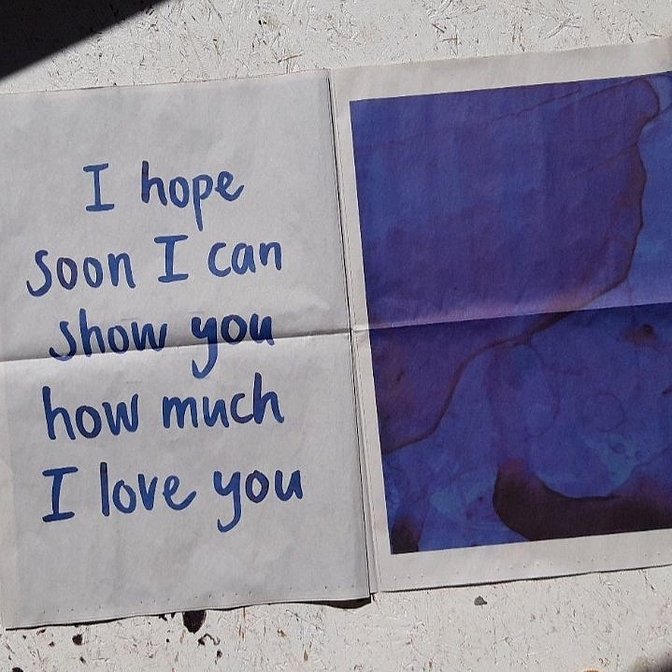 I hope
soon I can
show you
how much
I love you